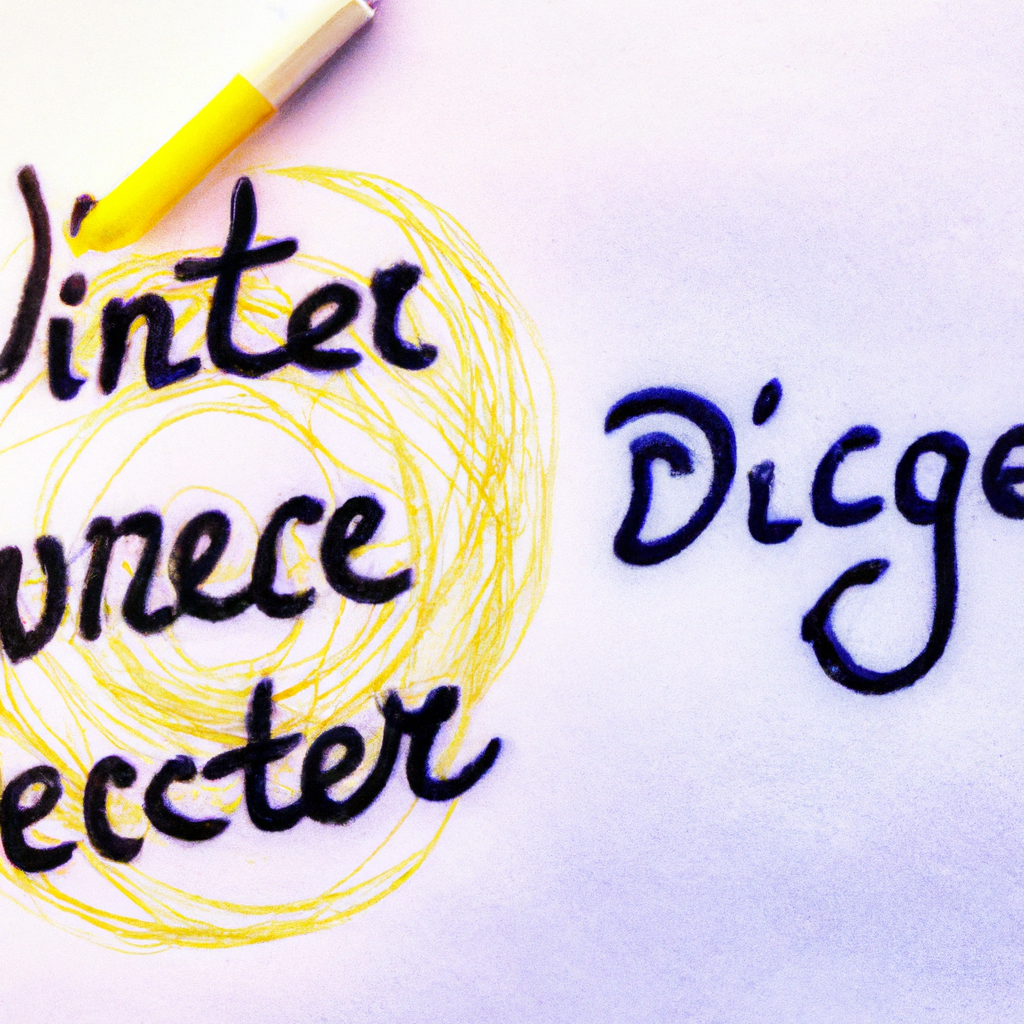 inter
unece
eccter
Dicge